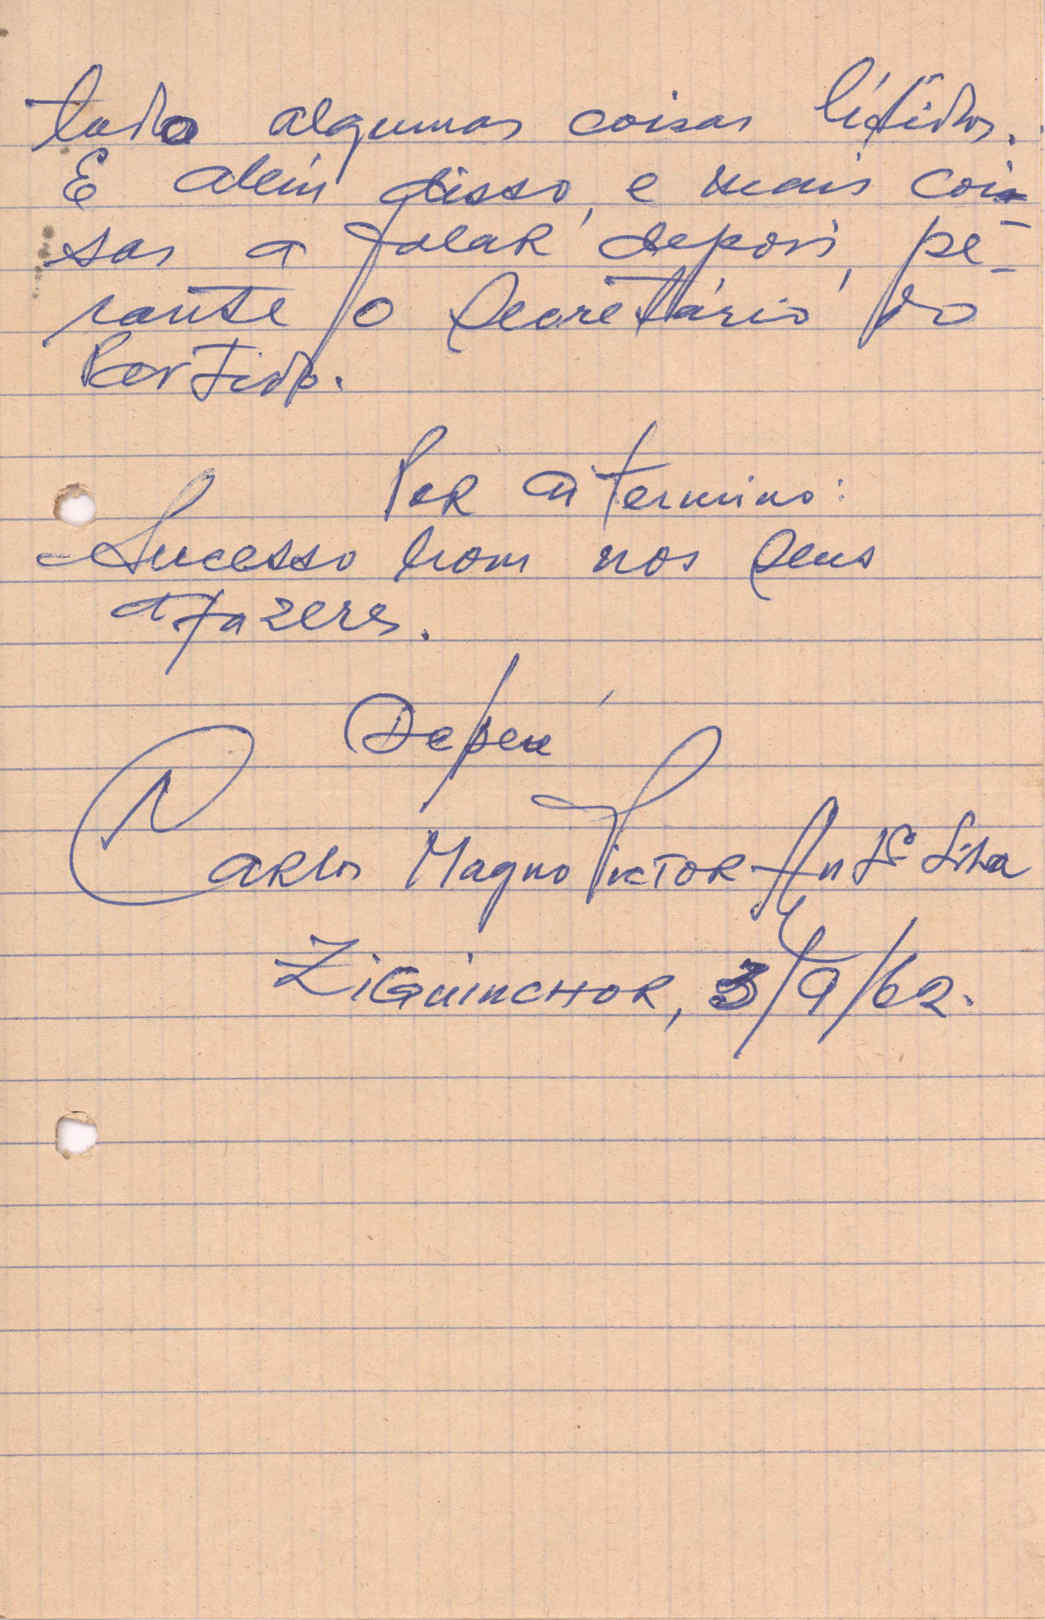 tudo algumas coisas
E alem disso, e mais coi-
sas a falar depois, pe-
rante o Secretário do
Partido.
Por a termino:
Sucesso bom nos seus
afazeres.
Carlos Magno Victor
Ziguinchor, 3/9/62.